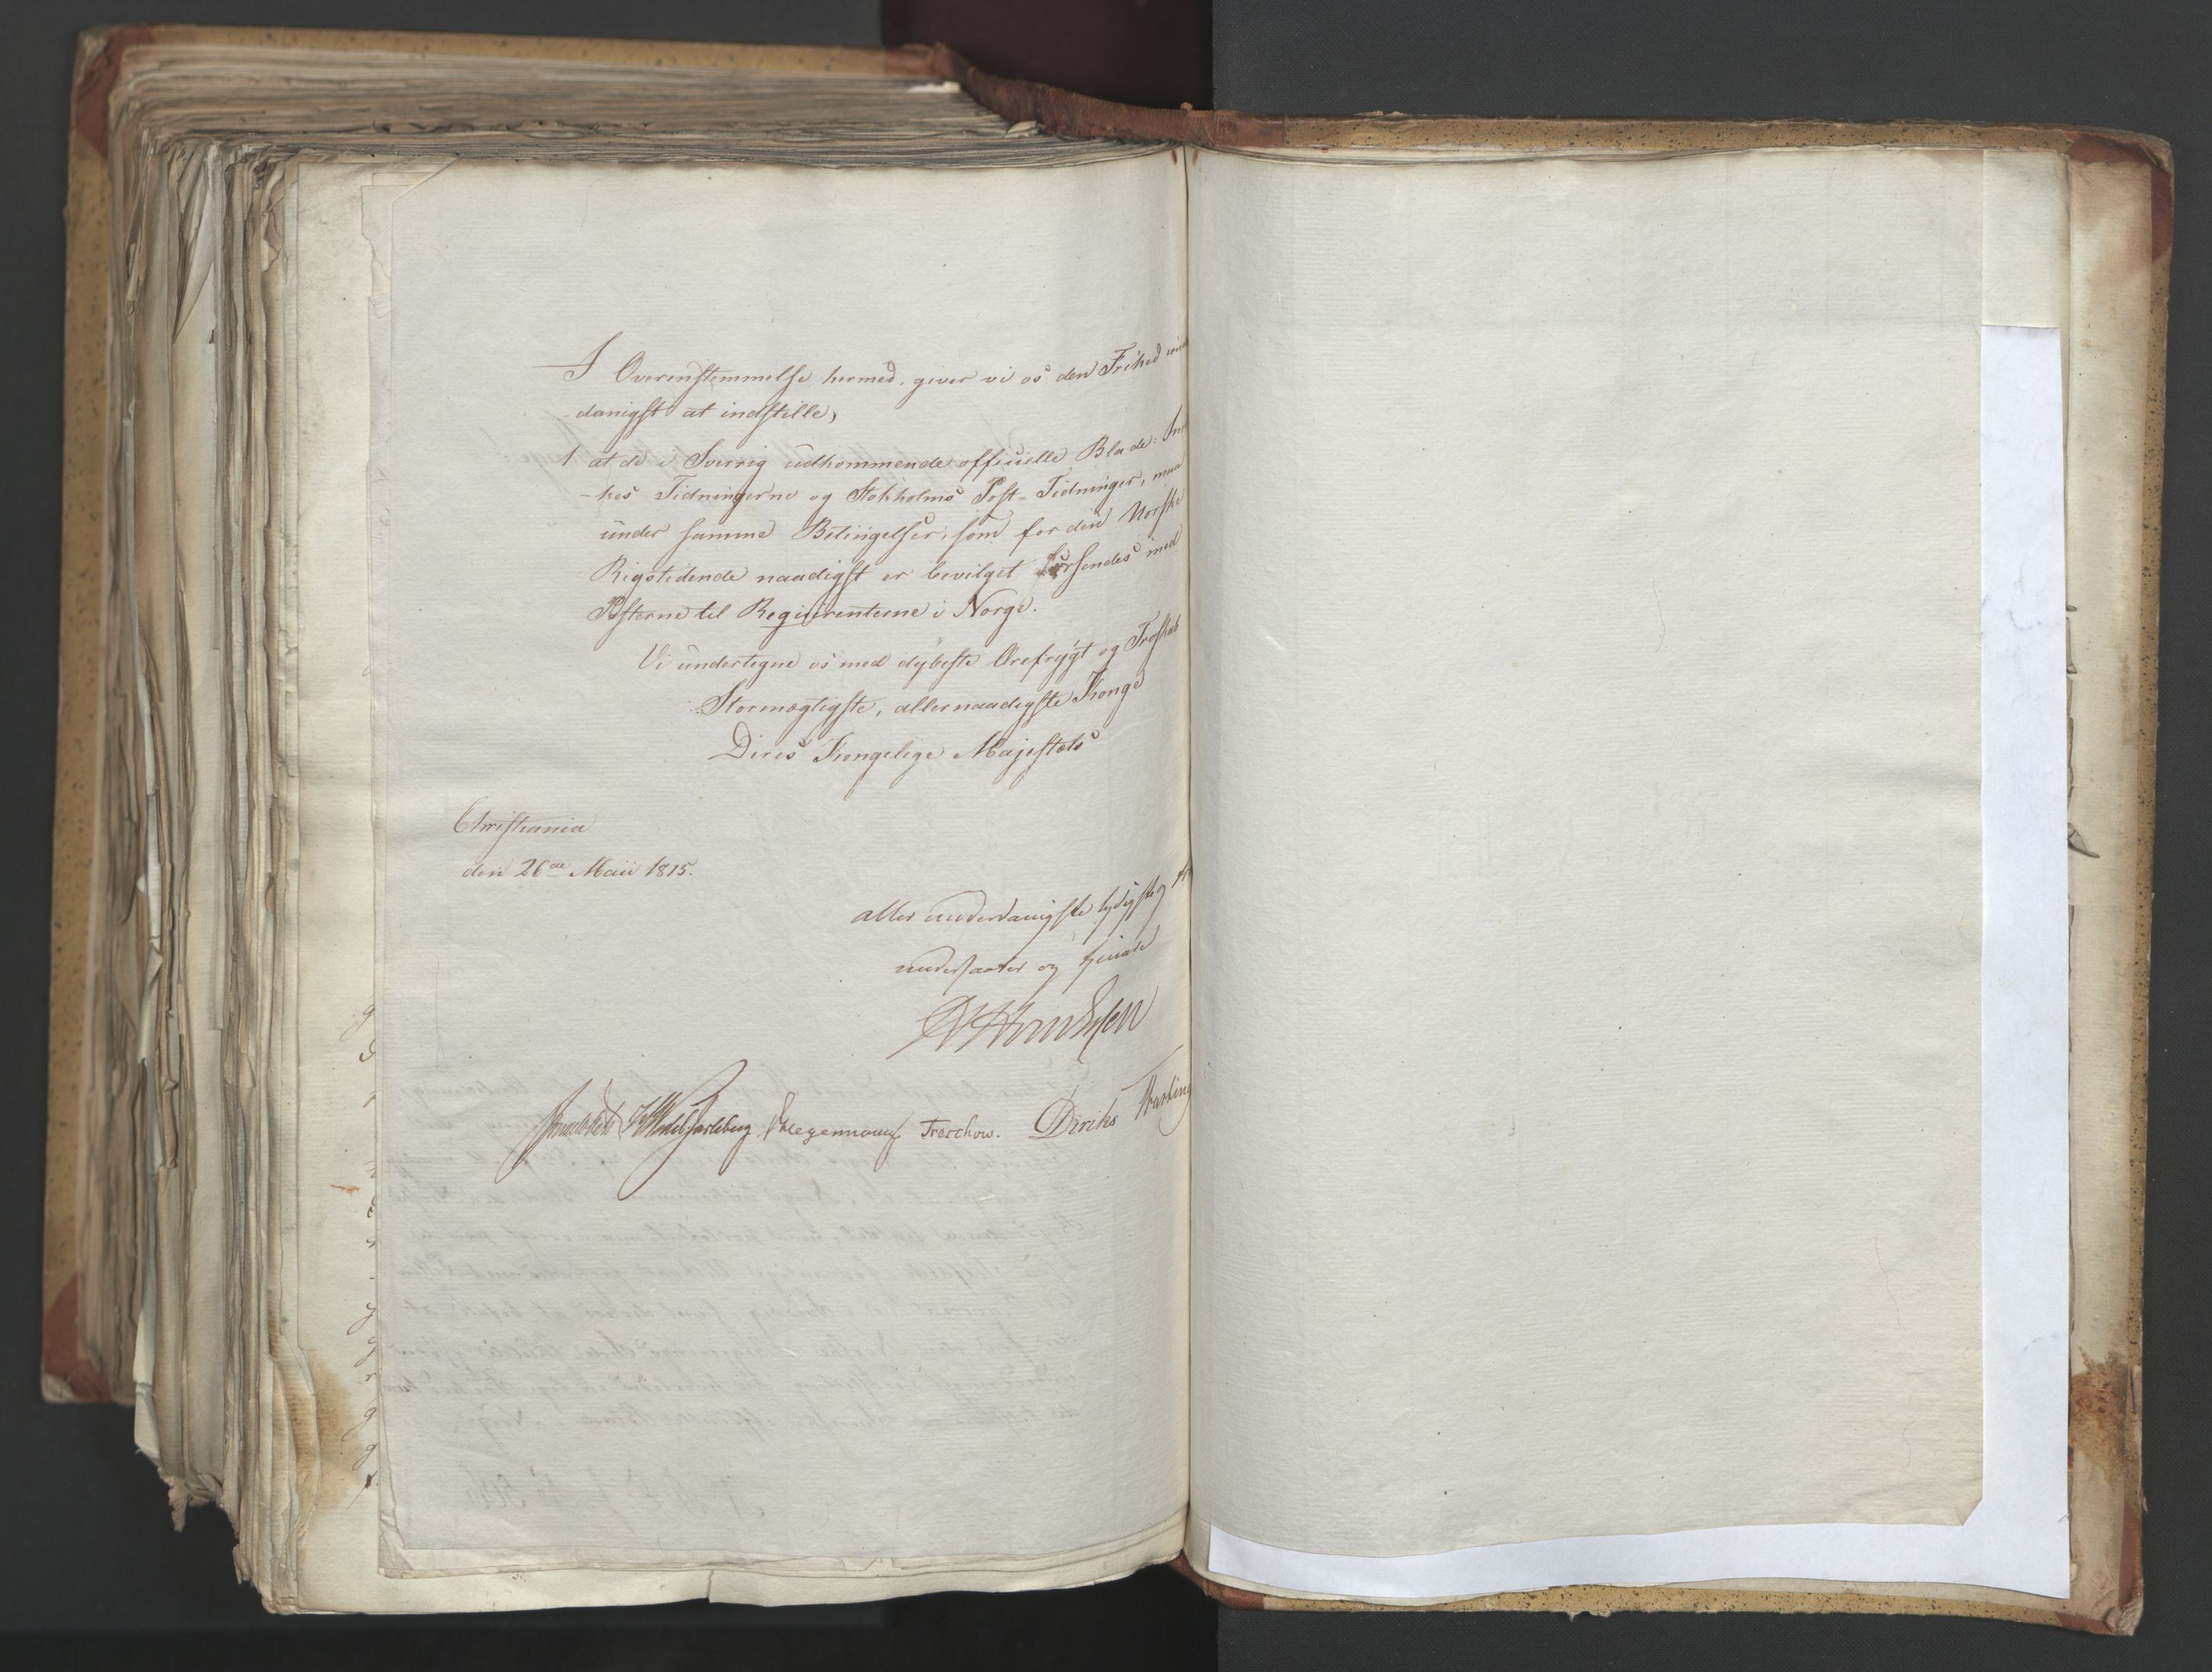 I Overenstemmelse hermed, giver vi os den Frihed
danigst at indstille,
1 at de i Sverrig udkommende officielle Blade: Inri
-kes Tidningerne og Stokholms Post-Tidninger, maa
under samme Betingelser, som for den Norske
Rigstidende naadigst er bevilget forsendes med
Posterne til Regjerenterne i Norge.
Vi undertegne os med dybeste Ærefrygt og Troskab
Stormægtigste, allernaadigste Konge
Deres Kongelige Majestæts
Christiania
den 26de Maii 1815.
aller underdanigste lydigste og
undersaatter og tjenere
Sommerhielm Wedel Jarlsberg Hegermann Treschow. Diriks